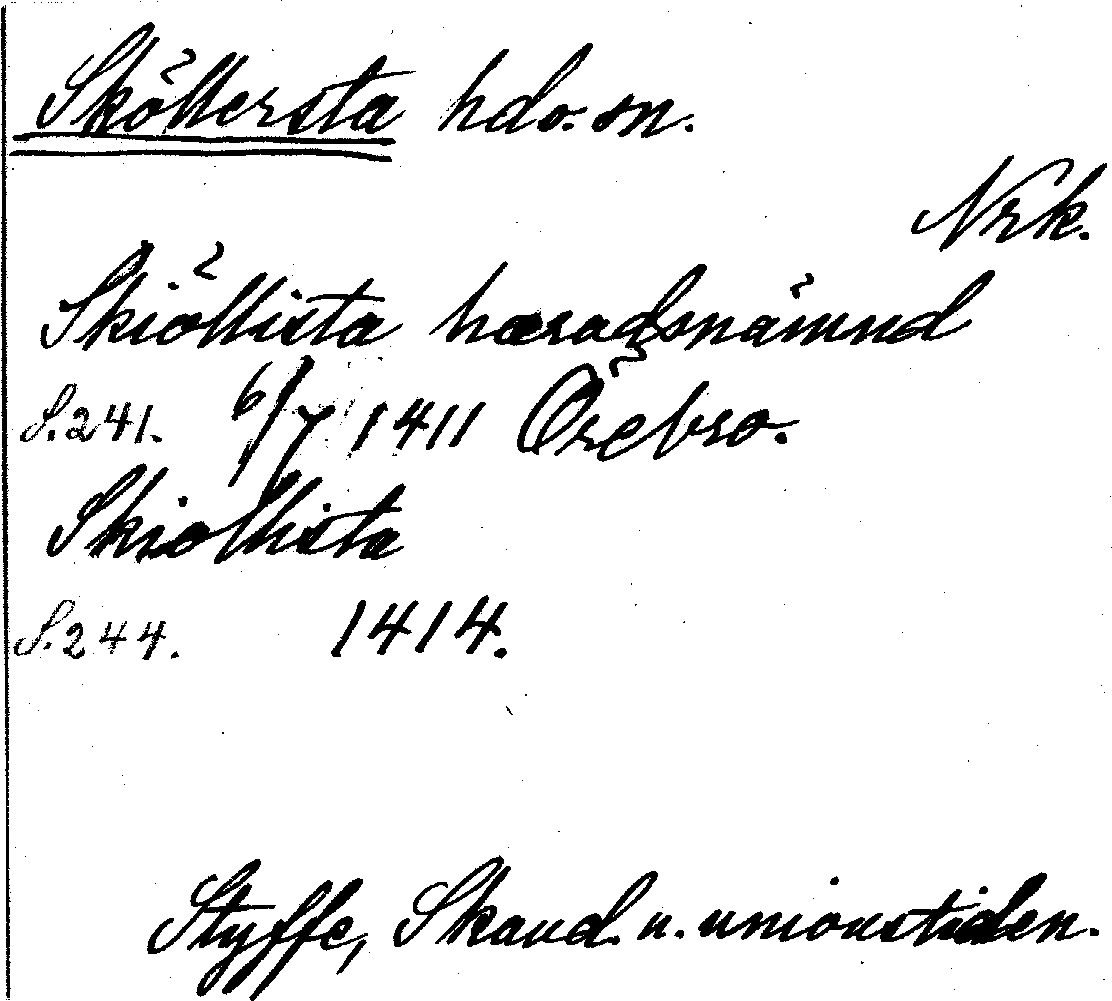 Sköllersta hdo.sn.
Nrk.
Skiöllista hæradsnämnd
S.241. 6/7 1411 Örebro.
Skiollista
S.244. 1414.
Styffe, Skand. u. unionstiden.